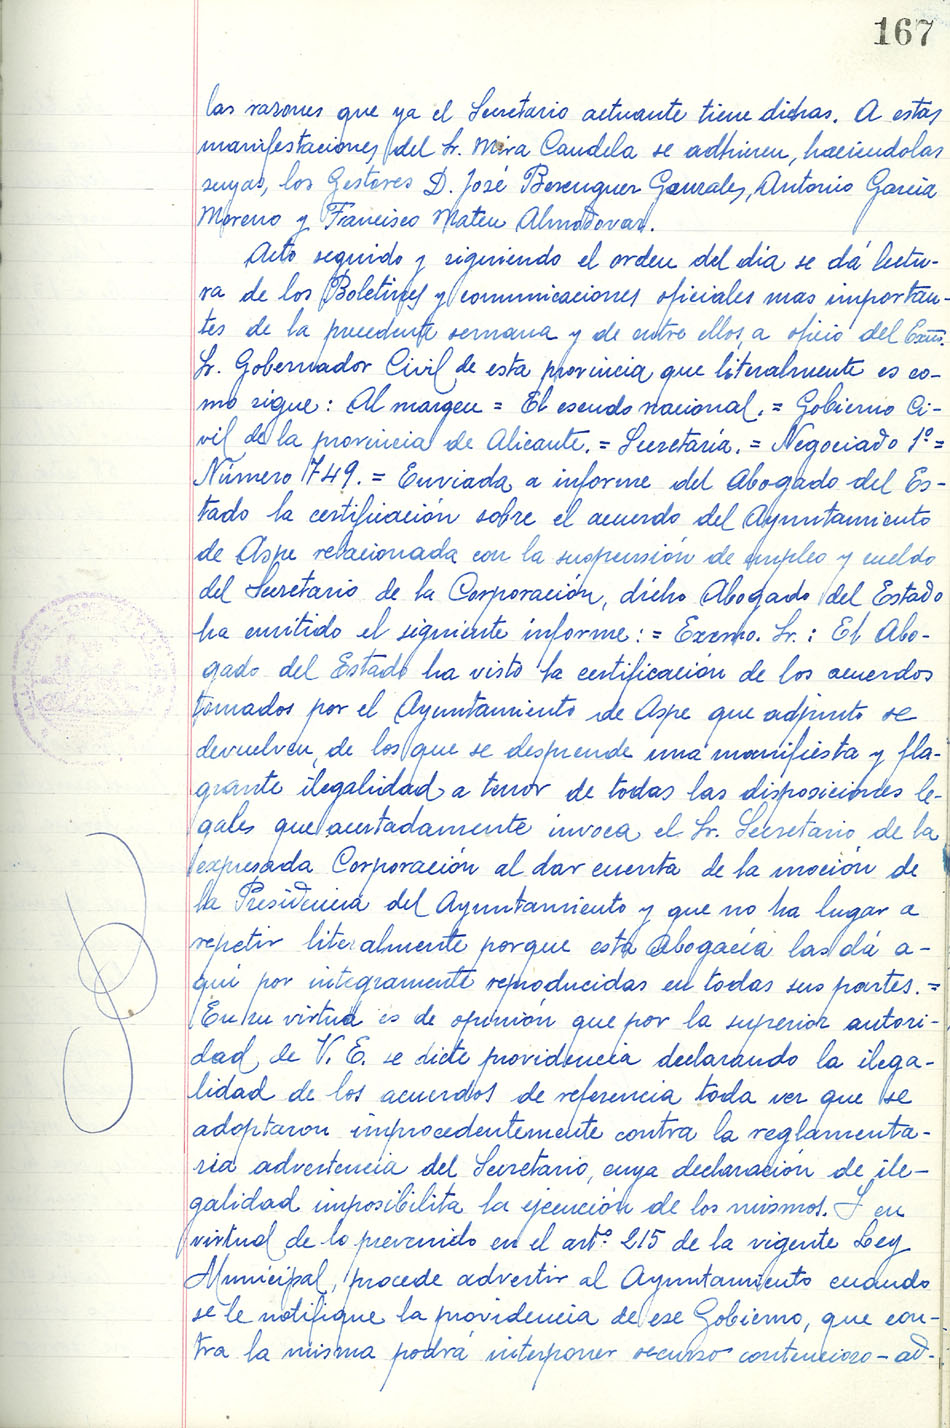 167
las razones que ya el Secretario actuante tiene dichas. A estas
manifestaciones del Sr. Mira Candela se adhieren, haciendolas
suyas, los Gestores D. José Berenguer Gonzalez, Antonio García
Moreno y Francisco Mateu Almodovar.
Acto seguido y siguiendo el orden del día se dá lectu-
ra de los Boletines y comunicaciones oficiales mas importan-
tes de la precedente semana y de entre ellos, a oficio del Excmo.
Sr. Gobernador Civil de esta provincia que literalmente es co-
mo sigue: Al margen = El escudo nacional. = Gobierno Ci-
vil de la provincia de Alicante. = Secretaría. = Negociado 1º =
Número 749. = Enviada a informe del Abogado del Es-
tado la certificación sobre el acuerdo del Ayuntamiento
de Aspe relacionada con la suspensión de empleo y sueldo
del Secretario de la Corporación, dicho Abogado del Estado
ha emitido el siguiente informe: = Excmo. Sr.: El Abo-
gado del Estado ha visto la certificación de los acuerdos
tomados por el Ayuntamiento de Aspe que adjunto se
devuelven, de los que se desprende una manifiesta y fla-
grante ilegalidad a tenor de todas las disposiciones le-
gales que acertadamente invoca el Sr. Secretario de la
expresada Corporación al dar cuenta de la moción de
la Presidencia del Ayuntamiento y que no ha lugar a
repetir literalmente porque esta Abogacía las dá a-
quí por integramente reproducidas en todas sus partes. =
En su virtud es de opinión que por la superior autori-
dad de V. E. se dicte providencia declarando la ilega-
lidad de los acuerdos de referencia toda vez que se
adoptaron improcedentemente contra la reglamenta-
ria advertencia del Secretario, cuya declaración de ile-
galidad imposibilita la ejecución de los mismos. Y en
virtud de lo prevenido en el artº 215 de la vigente Ley
Municipal, procede advertir al Ayuntamiento cuando
se le notifique la providencia de ese Gobierno, que con-
tra la misma podrá interponer recurso contencioso-ad-